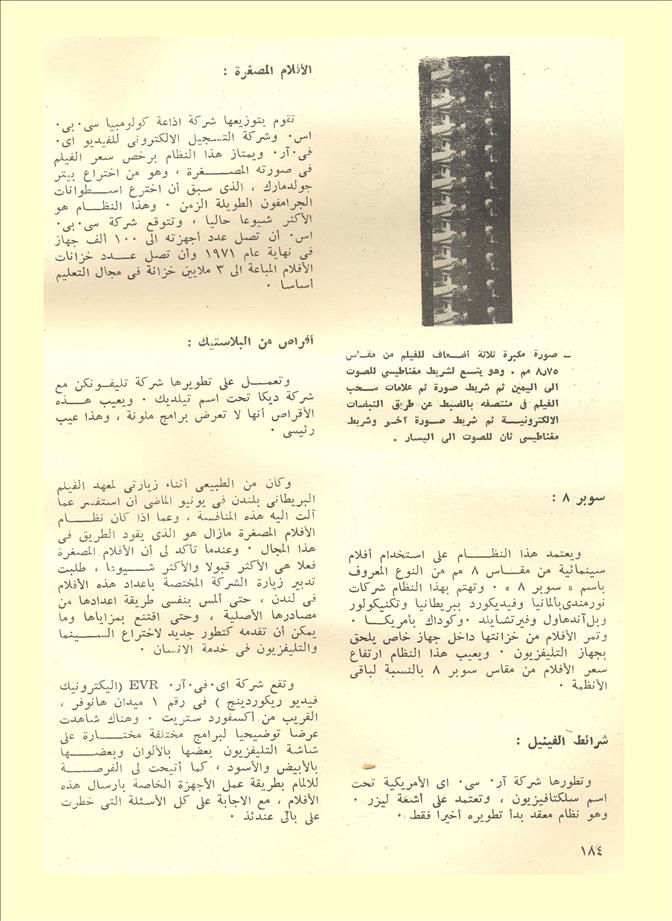 ـ صورة مكبرة ثلاثة أضعاف للفيلم من مقاس
٨٫٧٥ مم ٠ وهو يتسع لشريط مغناطيسى للصوت
الى اليمين ثم شريط صورة ثم علامات سحب
الفيلم فى منتصفه بالضبط عن طريق النبضات
الالكترونية ثم شريط صورة آخر وشريط
مغناطيسى ثان للصوت الى اليسار ٠
سوبر ٨ :
ويعتمد هذا النظام على استخدام أفلام
سينمائية من مقاس ٨ مم من النوع المعروف
باسم « سوبر ٨ » ٠ وتهتم بهذا النظام شركات
نورمندى بألمانيا وفيديكورد ببريطانيا وتكنيكولور
وبل آندهاول وفيرتشايلد ٠ وكوداك بأمريكا ٠
وتمر الأفلام من خزانتها داخل جهاز خاص يلحق
بجهاز التليفزيون ٠ ويعيب هذا النظام ارتفاع
سعر الأفلام من مقاس سوبر ٨ بالنسبة لباقى
الأنظمة ٠
شرائط الفينيل :
وتطورها شركة آر٠ سى٠ اى الأمريكية تحت
اسم سلكتافيزيون ، وتعتمد على أشعة ليزر ٠
وهو نظام معقد بدأ تطويره أخيرا فقط ٠
الأفلام المصغرة :
تقوم بتوزيعها شركة اذاعة كولومبيا سى٠ بى٠
اس٠ وشركة التسجيل الالكترونى للفيديو اى٠
فى٠ آر٠ ويمتاز هذا النظام برخص سعر الفيلم
فى صورته المصغرة ، وهو من اختراع بيتر
جولدمارك ، الذى سبق أن اخترع اسطوانات
الجرامفون الطويلة الزمن ٠ وهذا النظام هو
الأكثر شيوعا حاليا ، وتتوقع شركة سى٠ بى٠
اس٠ أن تصل عدد أجهزته الى ١٠٠ ألف جهاز
فى نهاية عام ١٩٧١ وأن تصل عدد خزانات
الأفلام المباعة الى ٣ ملايين خزانة فى مجال التعليم
أساسا ٠
أقراص من البلاستيك :
وتعمل على تطويرها شركة تليفونكن مع
شركة ديكا تحت اسم تيلديك ٠ ويعيب هذه
الأقراص أنها لا تعرض برامج ملونة ، وهذا عيب
رئيسى ٠
وكان من الطبيعى أثناء زيارتى لمعهد الفيلم
البريطانى بلندن فى يونيو الماضى أن استفسر عما
آلت اليه هذه المنافسة ، وعما اذا كان نظام
الأفلام المصغرة مازال هو الذى يقود الطريق فى
هذا المجال ٠ وعندما تأكد لى أن الأفلام المصغرة
فعلا هى الأكثر قبولا والأكثر شيوعا ، طلبت
تدبير زيارة الشركة المختصة باعداد هذه الأفلام
فى لندن ، حتى ألمس بنفسى طريقة اعدادها من
مصادرها الأصلية ، وحتى اقتنع بمزاياها وما
يمكن أن تقدمه كتطور جديد لاختراع السينما
والتليفزيون فى خدمة الانسان ٠
وتقع شركة اى٠ فى٠ آر٠ EVR (اليكترونيك
فيديو ريكوردينج ) فى رقم ١ ميدان هانوفر ،
القريب من أكسفورد ستريت ٠ وهناك شاهدت
عرضا توضيحيا لبرامج مختلفة مختارة على
شاشة التليفزيون بعضها بالألوان وبعضها
بالأبيض والأسود ، كما أتيحت لى الفرصة
للالمام بطريقة عمل الأجهزة الخاصة بارسال هذه
الأفلام ، مع الاجابة على كل الأسئلة التى خطرت
على بالى عندئذ ٠
١٨٤